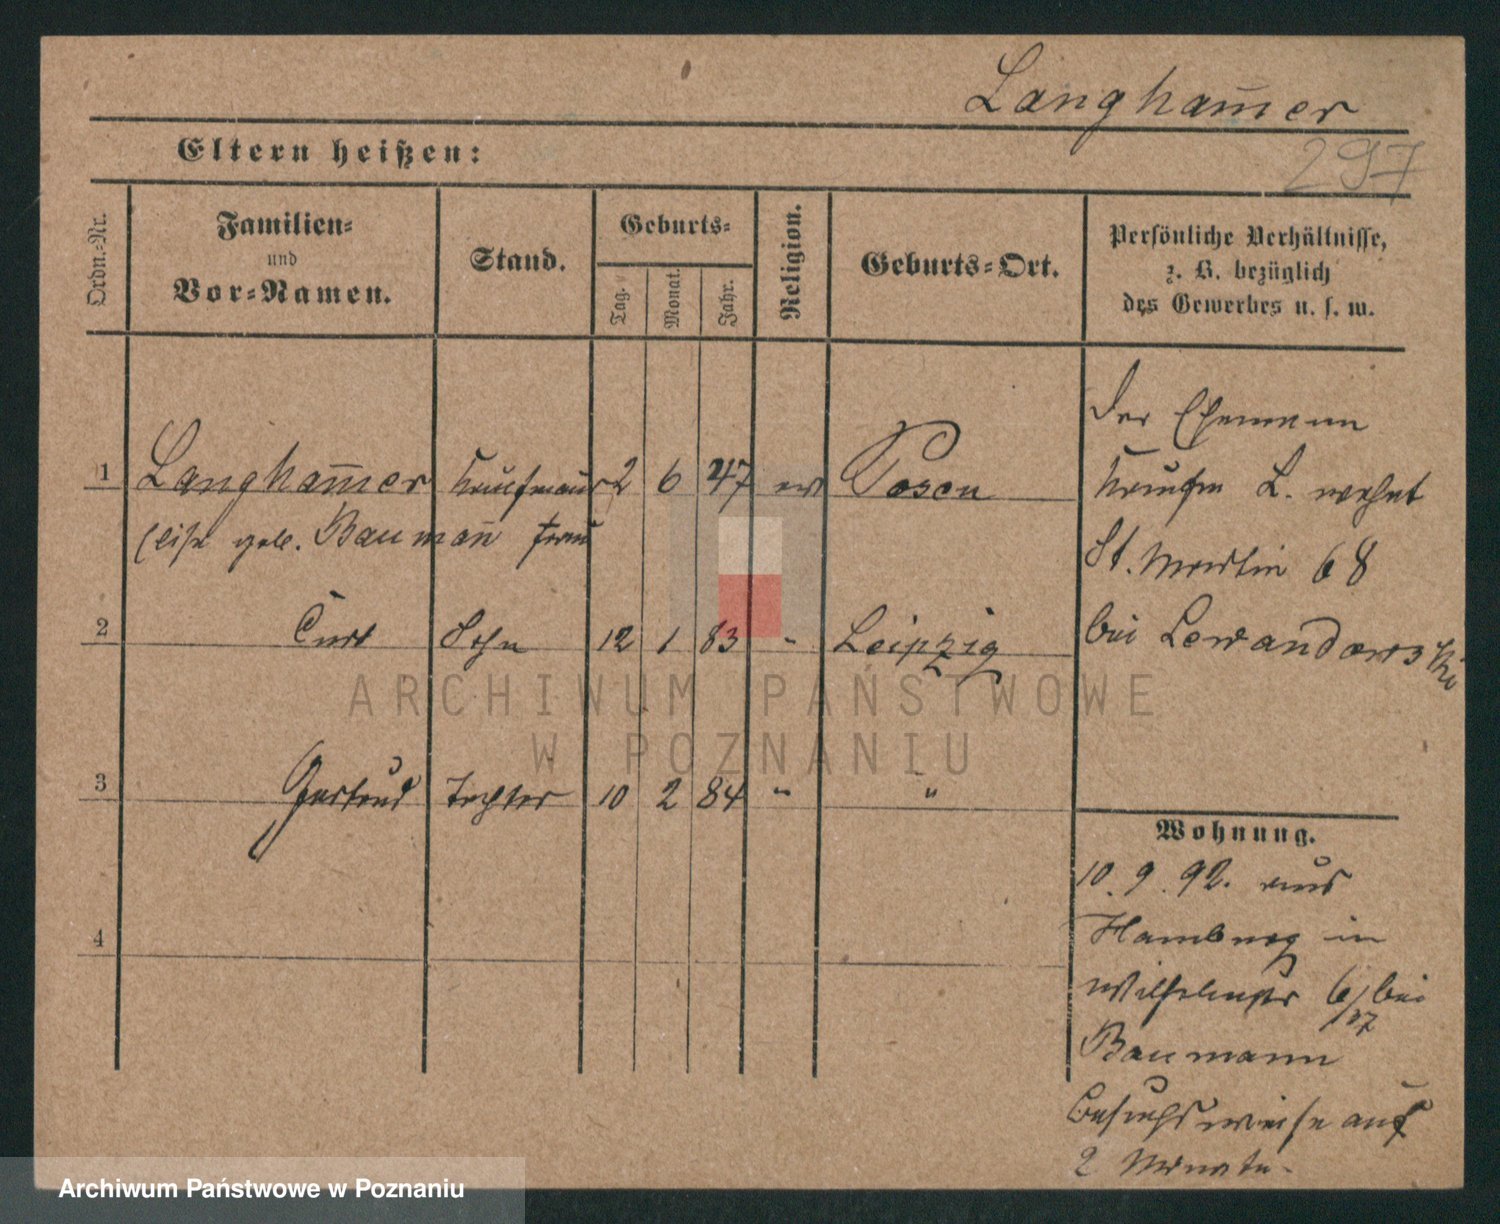 Langham̅er
297
Eltern heißen:
Ordn.-Nr.
Familien-
und
Vor-Namen.
Stand.
Geburts-
Tag.
Monat.
Jahr.
Religion.
Geburts-Ort.
Persönliche Verhältnisse,
z. B. bezüglich
des Gewerbes u. s. w.
1 Langham̅er Kaufmanns 2 6 47 ev Posen
geb. Bauman̅ frau
2 Curt Sohn 12 1 83 " Leipzig
3 Gertrud Tochter 10 2 84 " "
4
Der Ehemann
Kaufm L. wohnt
St. Martin 68
bei Lewandowski
Wohnung.
10. 9. 92. aus
Hamburg in
Wilhelmstr 6/ bei
Baumann
besuchsweise auf
2 Monate.
ARCHIWUM PAŃSTWOWE
W POZNANIU
Archiwum Państwowe w Poznaniu